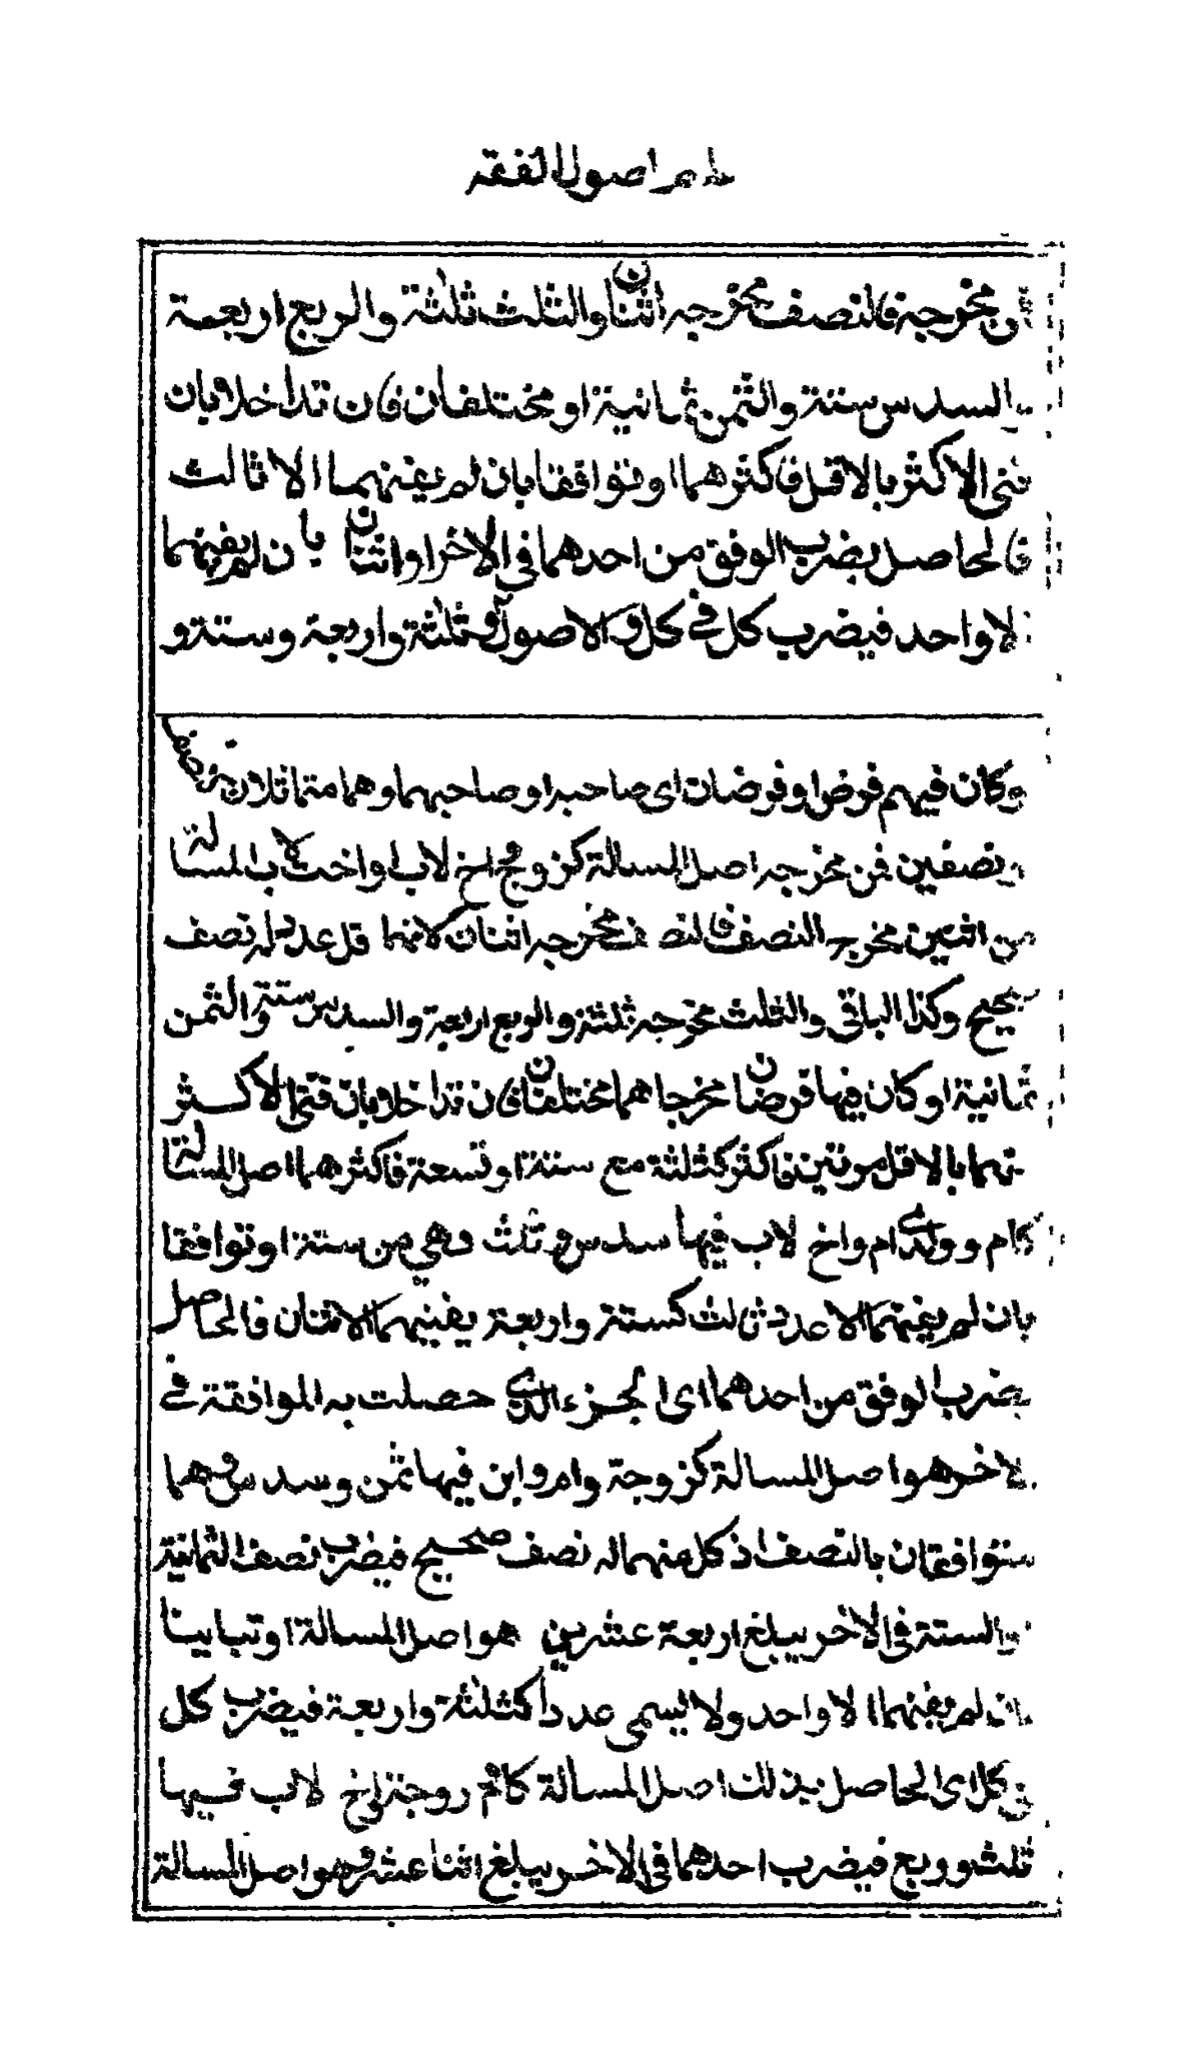 علم اصول الفقه
من مخرجه فالنصف مخرجه اثنان والثلث ثلثة والربع اربعة
والسدس ستة والثمن ثمانية او مختلفان فان تداخلا بان
فنى الاكثر بالاقل فاكثرهما او توافقا بان لم يفنهما الا ثالث
فالحاصل بضرب الوفق من احدهما في الاخر او اثنان بان لم يفنهما
الا واحد فيضرب كل في كل والاصول ثلثة واربعة وستة و
وكان فيهم فرض او فرضان اى صاحبه او صاحبهما وهما متماثلان
نصفين فمن مخرجه اصل المسالة كزوج واخ لاب او اخت لاب المسالة
من اثنين مخرج النصف فالنصف مخرجه اثنان لانهما اقل عدد له نصف
صحيح وكذا الباقى والثلث مخرجه ثلثة والربع اربعة والسدس ستة والثمن
ثمانية او كان فيها فرضان مخرجاهما مختلفان فان تداخلا بان فنى الاكثر
منهما بالاقل مرتين فاكثر كثلثة مع ستة او تسعة فاكثرهما اصل المسالة
كام وولدى ام واخ لاب فيها سدس وثلث وهي من ستة او توافقا
بان لم يفنهما الا عدد ثالث كستة واربعة يفنيهما الاثنان فالحاصل
بضرب الوفق من احدهما اى الجزء الذى حصلت به الموافقة في
الاخر هو اصل المسالة كزوجة وام وابن فيها ثمن وسدس وهما
متوافقان بالنصف اذ كل منهما له نصف صحيح فيضرب نصف الثمانية
والستة في الاخر يبلغ اربعة عشرين هو اصل المسالة او تباينا
بان لم يفنهما الا واحد ولا يسمى عددا كثلثة واربعة فيضرب كل
في كل اى الحاصل بذلك اصل المسالة كام زوجة اخ لاب فيها
ثلث وربع فيضرب احدهما في الاخر يبلغ اثنا عشر وهو اصل المسالة